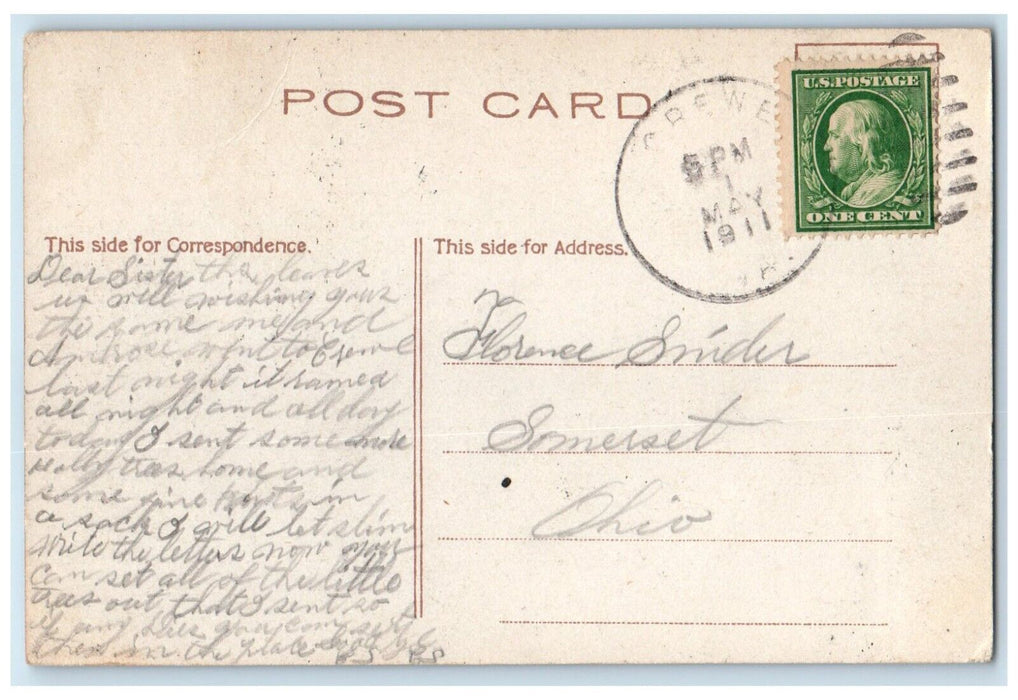 POST CARD
CREWE
5 PM
1
MAY
1911
VA.
U.S. POSTAGE
ONE CENT
This side for Correspondence.
Dear Sister this leaves
us well wishing you
the same me and
Ambrose went to Crewe
last night it rained
all night and all day
today I sent some more
holly trees home and
some pine in
a sack I will let slim
write the letters now you
can set all of the little
trees out that I sent so
if any dies you can set
them in the place
This side for Address.
Florence Snider
Somerset
Ohio